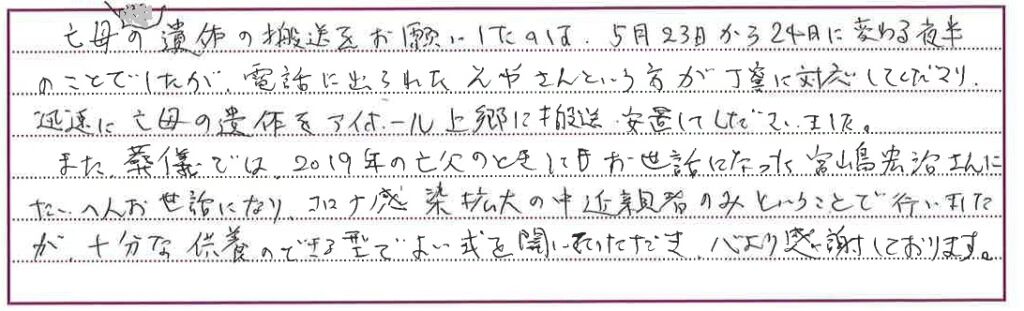 亡母の遺体の搬送をお願いしたのは、5月23日から24日に変わる夜半
のことでしたが、電話に出られたえやさんという方が丁寧に対応してくださり、
迅速に亡母の遺体をアイホール上郷に搬送、安置してくださいました。
また、葬儀では、2019年の亡父のときしてもお世話になった宮嶋宏治さんに
たいへんお世話になり、コロナ感染拡大の中近親者のみということで行いました
が、十分な供養のできる型でよい式を開いていただき、心より感謝しております。